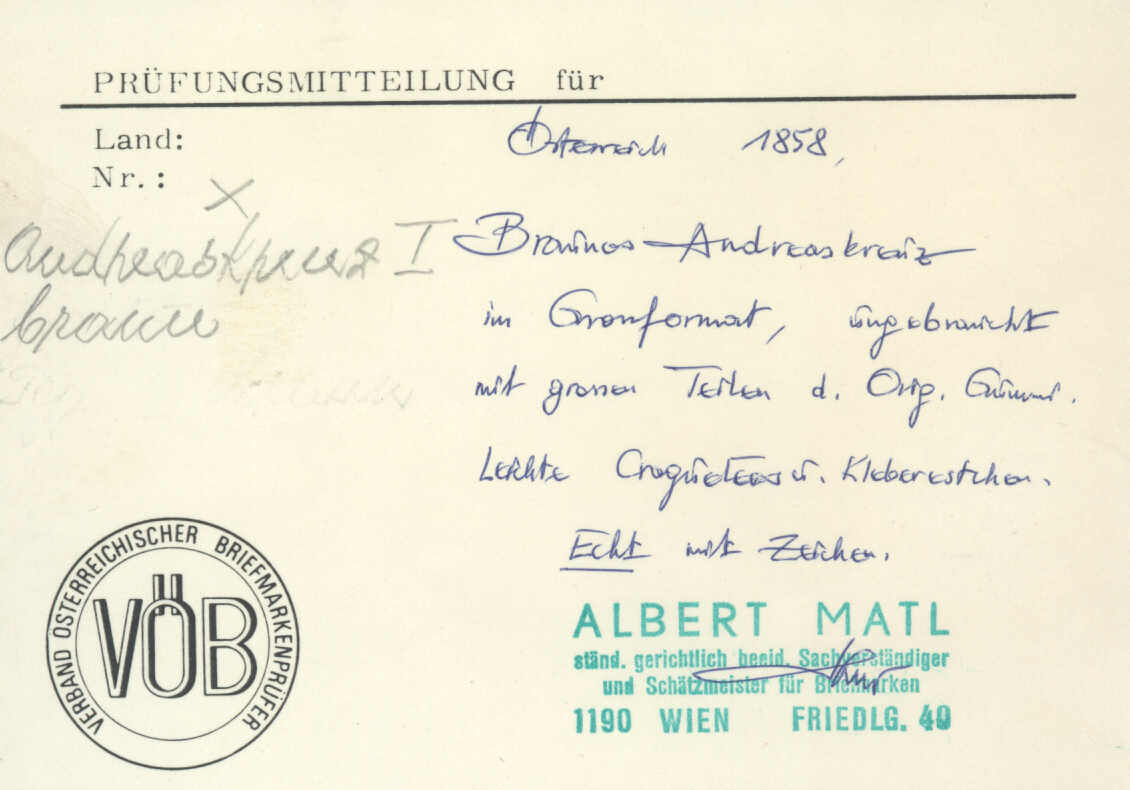 PRÜFUNGSMITTEILUNG für
Land:
Österreich 1858,
Nr.:
Andreaskreuz I
braun
Braunes Andreaskreuz
im Grossformat, ungebraucht
mit grossen Teilen d. Orig. Gummi.
Leichte u. Kleberestchen.
Echt mit Zeichen.
VERBAND ÖSTERREICHISCHER BRIEFMARKENPRÜFER
VÖB
ALBERT MATL
ständ. gerichtlich beeid. Sachverständiger
und Schätzmeister für Briefmarken
1190 WIEN FRIEDLG. 40